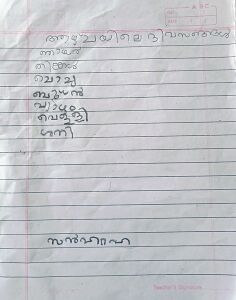 ആഴ്ചയിലെ ദിവസങ്ങൾ
ഞായർ
തിങ്കൾ
ചൊവ്വ
ബുധൻ
വ്യാഴം
വെള്ളി
ശനി
Teacher's Signature